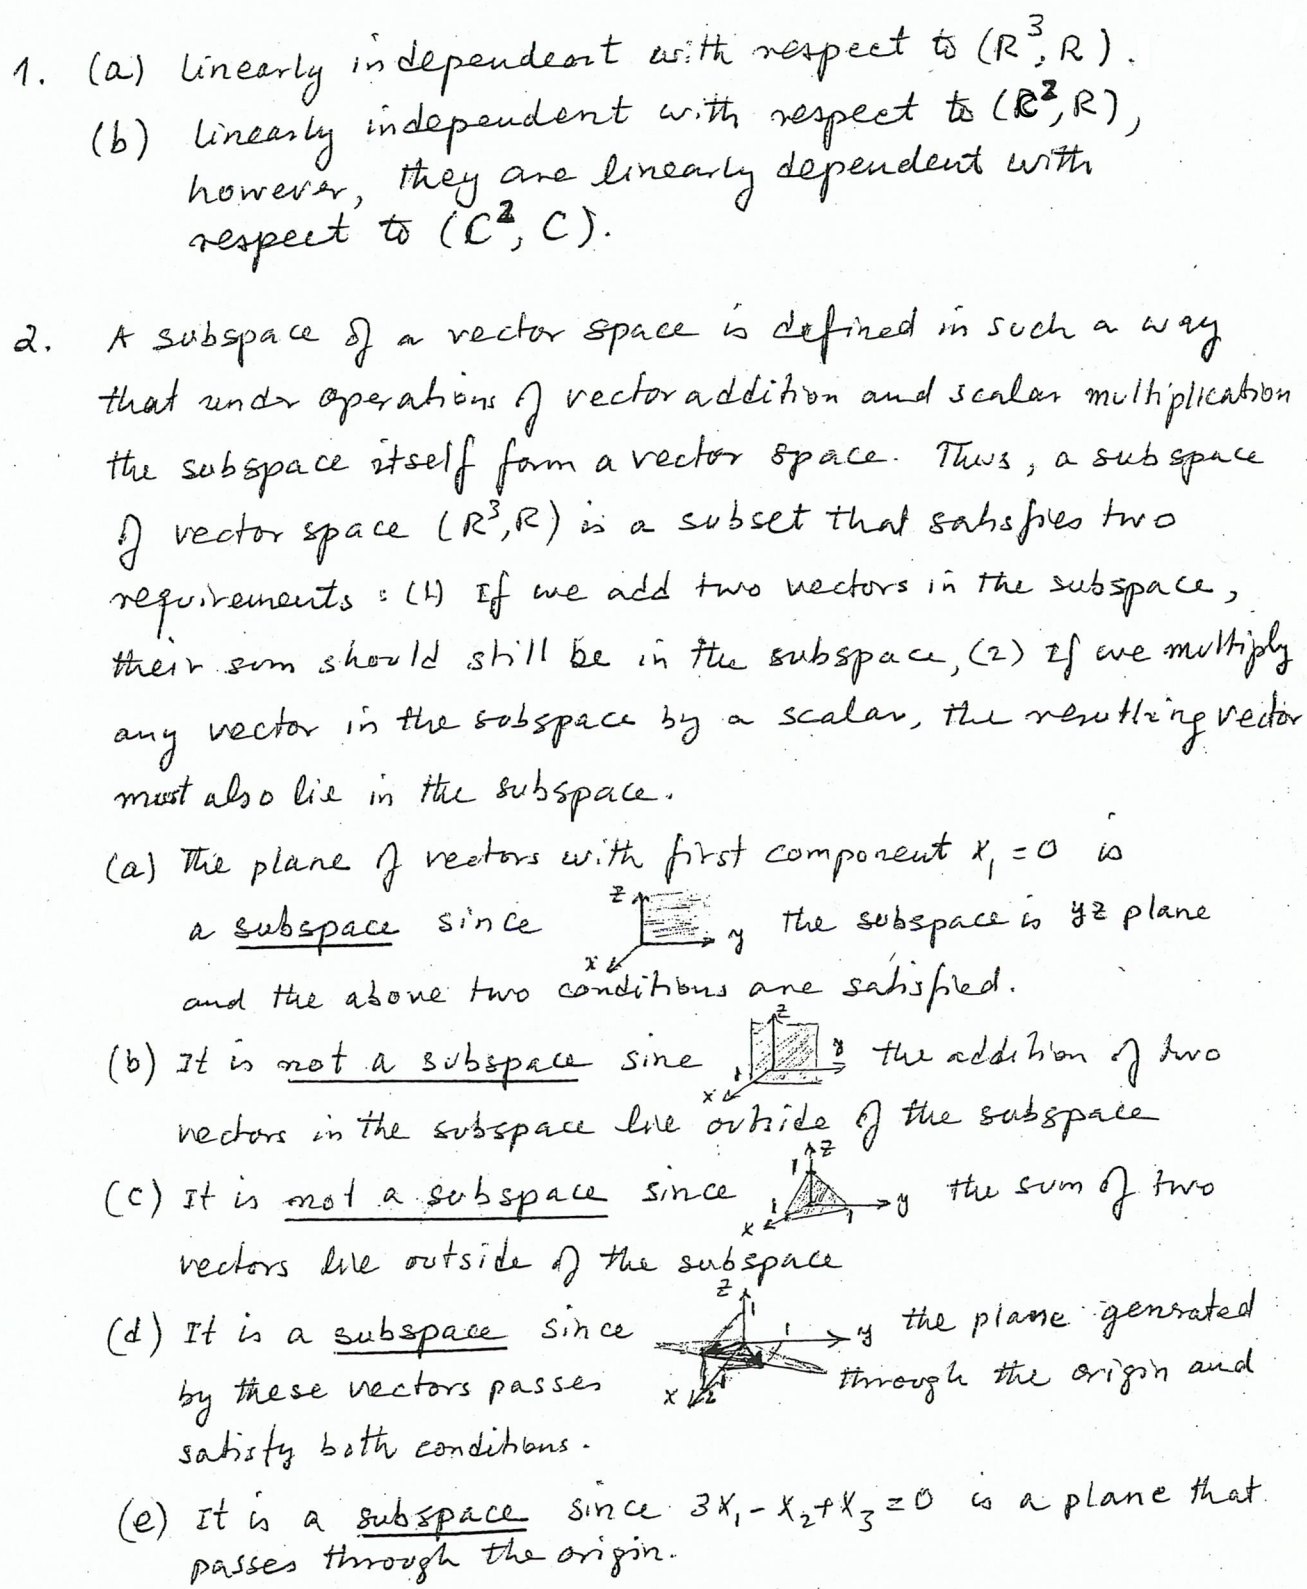 1. (a) linearly independent with respect to (R³, R).
(b) linearly independent with respect to (C², R),
however, they are linearly dependent with
respect to (C², C).
2. A subspace of a vector space is defined in such a way
that under operations of vector addition and scalar multiplication
the subspace itself form a vector space. Thus, a subspace
of vector space (R³, R) is a subset that satisfies two
requirements: (1) If we add two vectors in the subspace,
their sum should still be in the subspace, (2) If we multiply
any vector in the subspace by a scalar, the resulting vector
must also lie in the subspace.
(a) The plane of vectors with first component x₁ = 0 is
a subspace since z y x the subspace is yz plane
and the above two conditions are satisfied.
(b) It is not a subspace sine z y 1 x the addition of two
vectors in the subspace lie outside of the subspace
(c) It is not a subspace since z 1 y 1 x 1 the sum of two
vectors lie outside of the subspace
(d) It is a subspace since z 1 1 y x 2 the plane genrated
by these vectors passes through the origin and
satisfy both conditions.
(e) It is a subspace since 3x₁ - x₂ + x₃ = 0 is a plane that
passes through the origin.